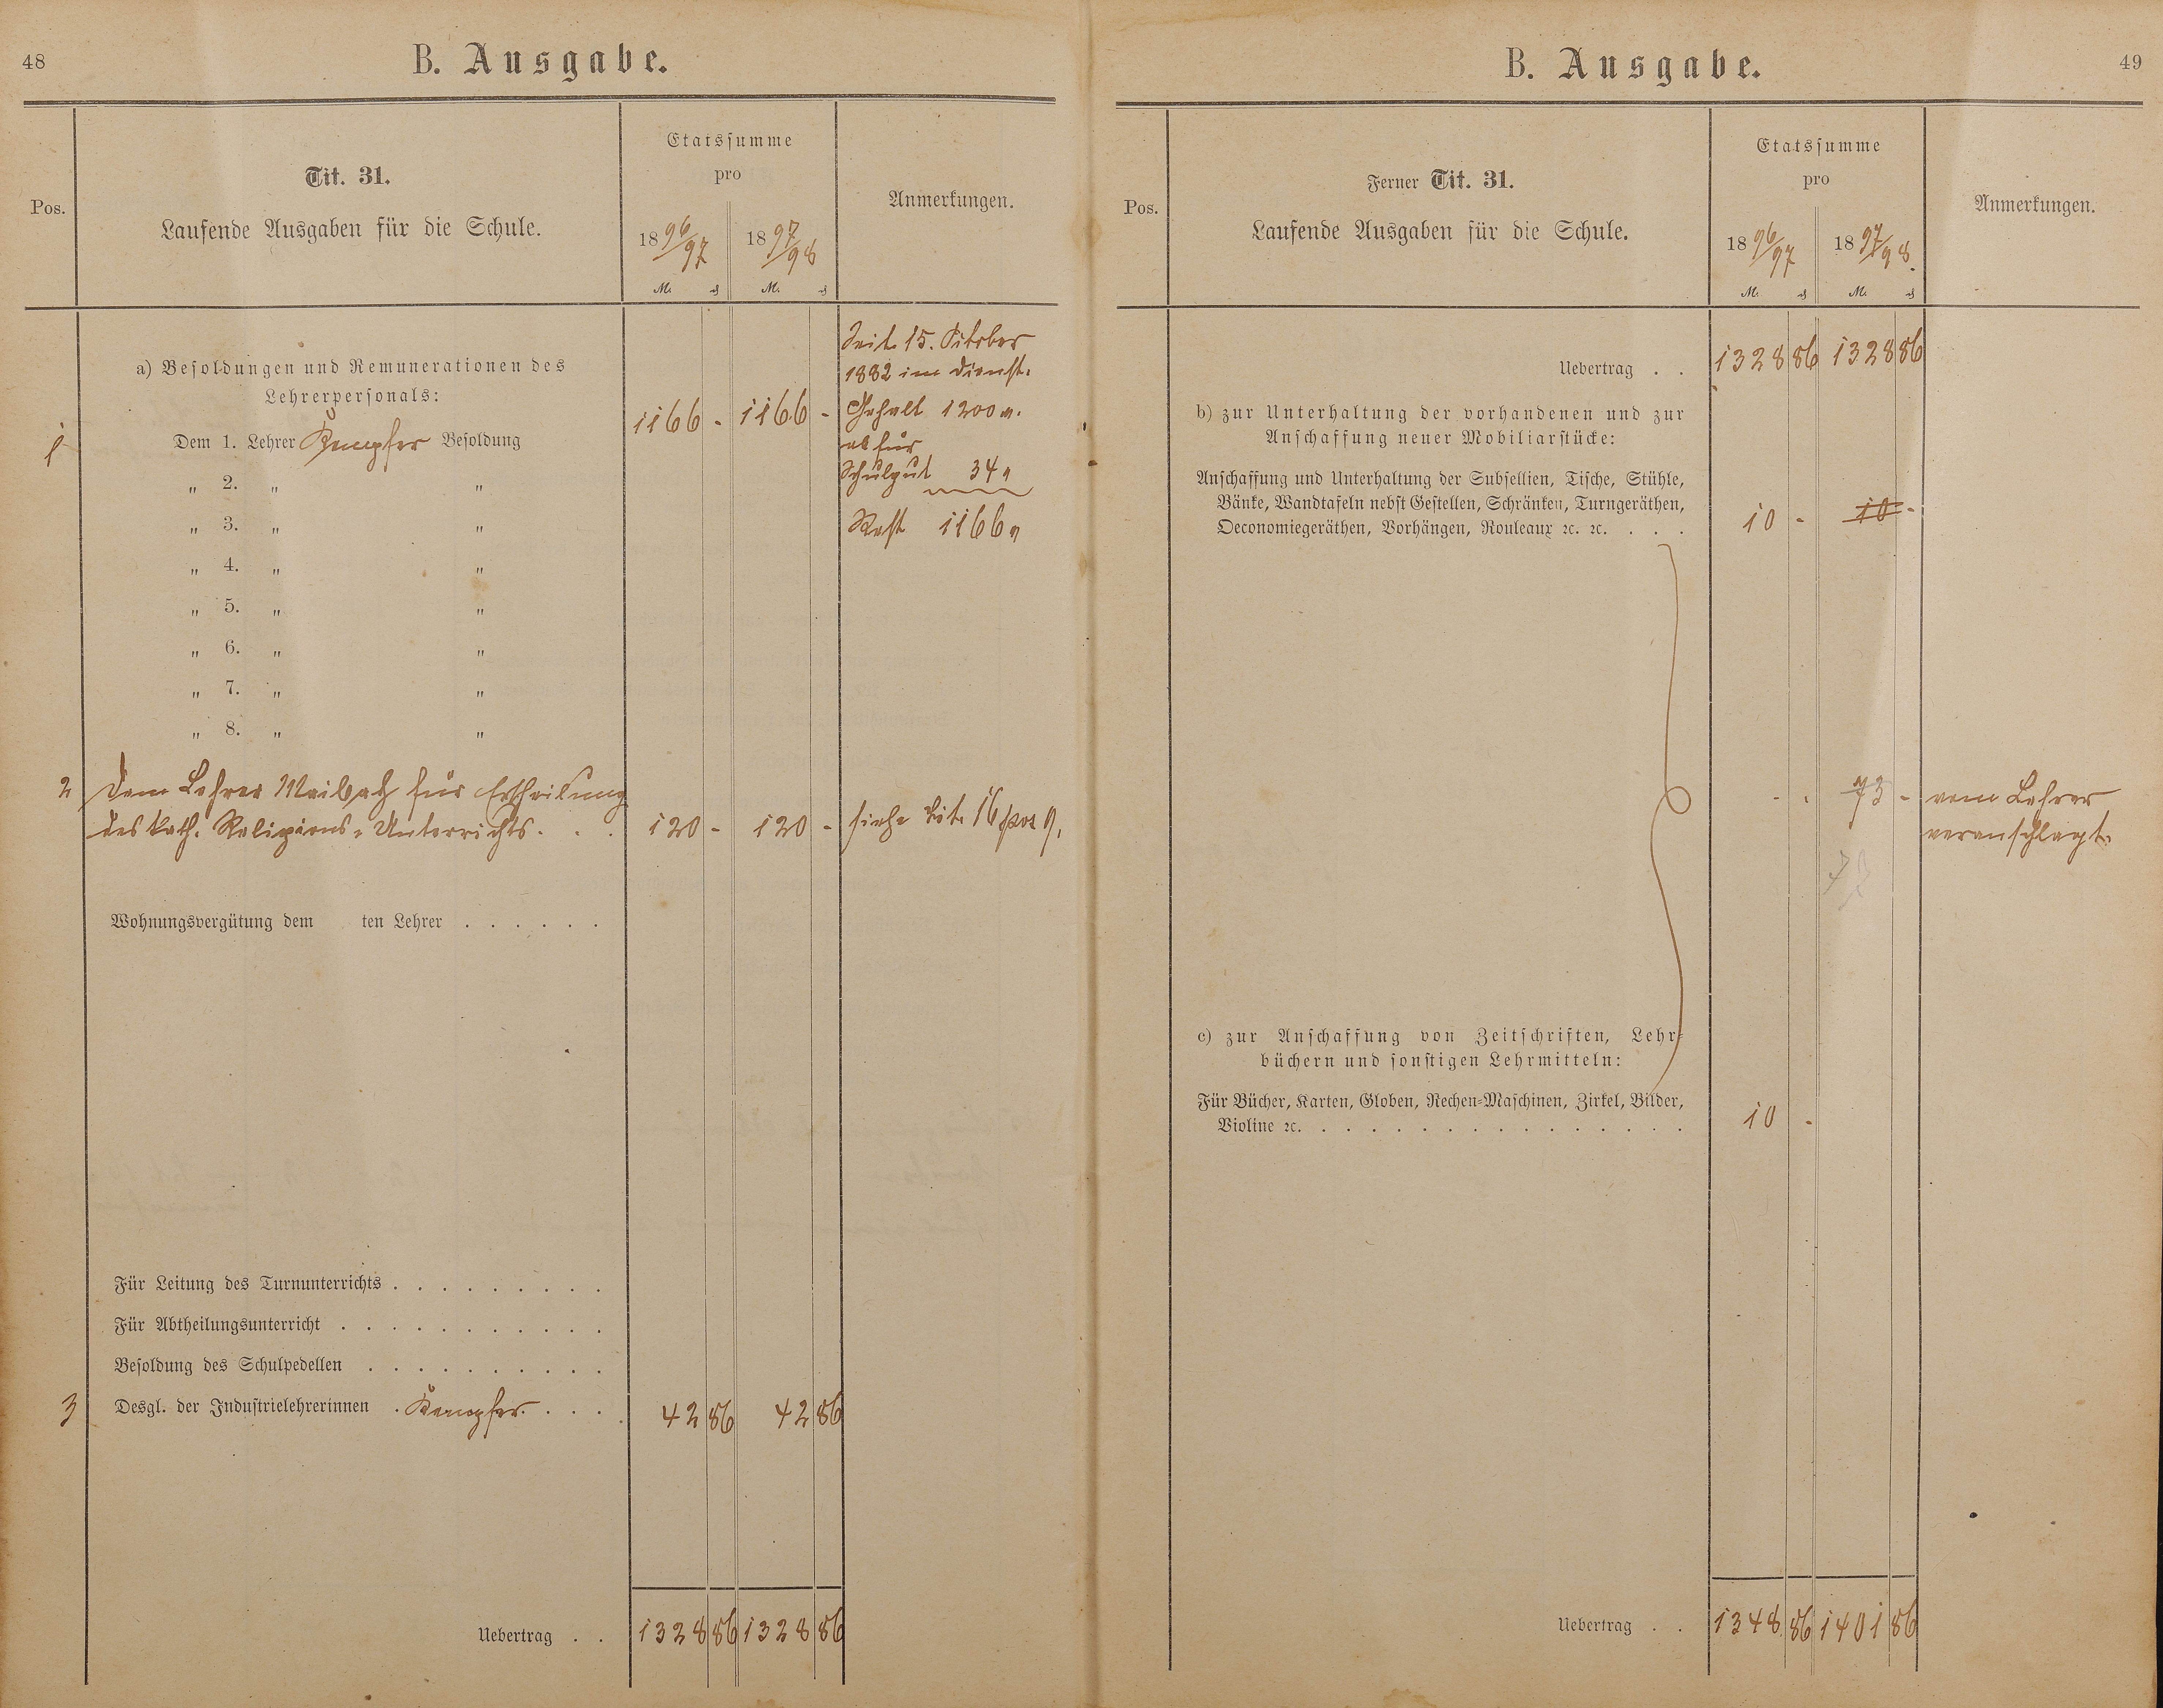 48
B. Ausgabe.
Pos.
Tit. 31.
Laufende Ausgaben für die Schule.
Etatssumme
pro
1896/97 1897/98
M. ₰ M. ₰
Anmerkungen.
a) Besoldungen und Remunerationen des
Lehrerpersonals:
1 Dem 1. Lehrer Kempfer Besoldung 1166 - 1166 -
Seit 15. Oktober
1882 im Dienst.
Gehalt 1200 M.
ab für
Schulgut 34 "
Rest 1166 "
" 2. " "
" 3. " "
" 4. " "
" 5. " "
" 6. " "
" 7. " "
" 8. " "
2 Dem Lehrer Maibach für Ertheilung
des kath. Religions-Unterrichts . . . 120 - 120 - siehe Tit. 16 pos 9.
Wohnungsvergütung dem ten Lehrer . . . . . .
Für Leitung des Turnunterrichts . . . . . . . . .
Für Abtheilungsunterricht . . . . . . . . . . .
Besoldung des Schulpedellen . . . . . . . . . .
3 Desgl. der Industrielehrerinnen . Kempfer . . . . 42 86 42 86
Uebertrag . . 1328 86 1328 86
B. Ausgabe.
49
Pos.
Ferner Tit. 31.
Laufende Ausgaben für die Schule.
Etatssumme
pro
1896/97 1897/98.
M. ₰ M. ₰
Anmerkungen.
Uebertrag . . 1328 86 1328 86
b) zur Unterhaltung der vorhandenen und zur
Anschaffung neuer Mobiliarstücke:
Anschaffung und Unterhaltung der Subsellien, Tische, Stühle,
Bänke, Wandtafeln nebst Gestellen, Schränken, Turngeräthen,
Oeconomiegeräthen, Vorhängen, Rouleaux ꝛc. ꝛc. . . . 10 - 10 -
- . 73 - vom Lehrer
veranschlagt.
73
c) zur Anschaffung von Zeitschriften, Lehr-
büchern und sonstigen Lehrmitteln:
Für Bücher, Karten, Globen, Rechen-Maschinen, Zirkel, Bilder,
Violine ꝛc. . . . . . . . . . . . . . . . 10 -
Uebertrag . . 1348 86 1401 86